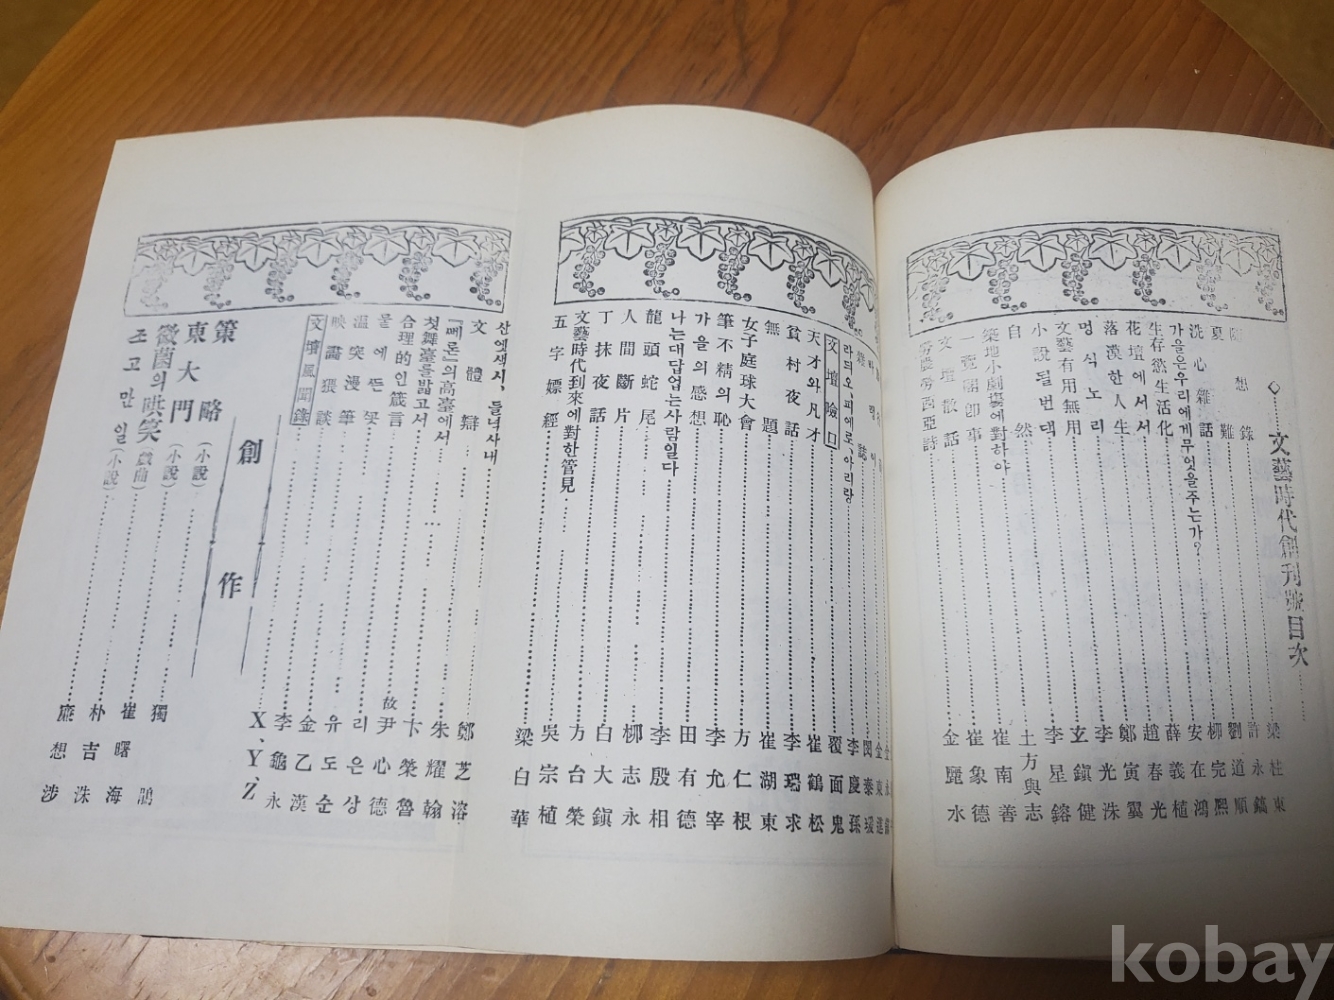 ◇……文藝時代創刊號目次
隨想錄……梁柱東
夏難……許永鎬
洗心雜話……劉道順
가을은우리에게무엇을주는가?……柳完熙
生存慾生活化……安在鴻
花壇에서서……薛義植
落漠한人生……趙春光
멍식노리……鄭寅翼
文藝有用無用……李光洙
小說될번댁……玄鎭健
自然……李星鎔
築地小劇場에對하야……土方與志
一覽卽事……崔南善
文壇散話……崔象德
勞農露西亞詩……金麗水
雜誌
라의오,피에로,아리랑……李慶孫
文壇險口……覆面鬼
天才와凡才……崔鶴松
貧村夜話……李瑞求
無題……崔湖東
女子庭球大會……方仁根
筆不精의恥……李允宰
가을의感想……田有德
나는대답업는사람일다……李殷相
龍頭蛇尾……柳志永
人間斷片……白大鎭
丁抹夜話……方台榮
文藝時代到來에對한管見……吳宗植
五字嫖經……梁白華
산엣새시,들녁사내……鄭芝溶
文體辯……朱耀翰
『뻬론』의高臺에서……卞榮魯
첫舞臺를밟고서……故尹心德
合理的인箴言……리은상
물에뜬곳……유도순
溫突漫筆……金乙漢
映畵猥談……李龜永
文壇風聞錄……X、Y、Z
創作
第略(小說)……獨鵑
東大門(小說)……崔曙海
黴菌의哄笑(戱曲)……朴吉洙
조고만일(小說)……廉想涉
kobay